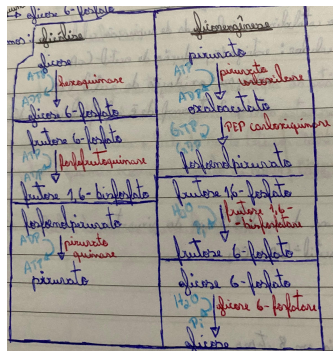 → glicose 6-fosfato
glicólise
glicose
ATP
hexoquinase
ADP
glicose 6-fosfato
frutose 6-fosfato
ATP
fosfofrutoquinase
ADP
frutose 1,6-bisfosfato
fosfoenolpiruvato
ADP
piruvato
quinase
ATP
piruvato
gliconeogênese
piruvato
ATP
piruvato
carboxilase
ADP
oxaloacetato
GTP
PEP carboxiquinase
GDP
fosfoenolpiruvato
frutose 1,6-fosfato
H₂O
frutose 1,6-
bisfosfatase
Pi
frutose 6-fosfato
glicose 6-fosfato
H₂O
glicose 6-fosfatase
Pi
glicose